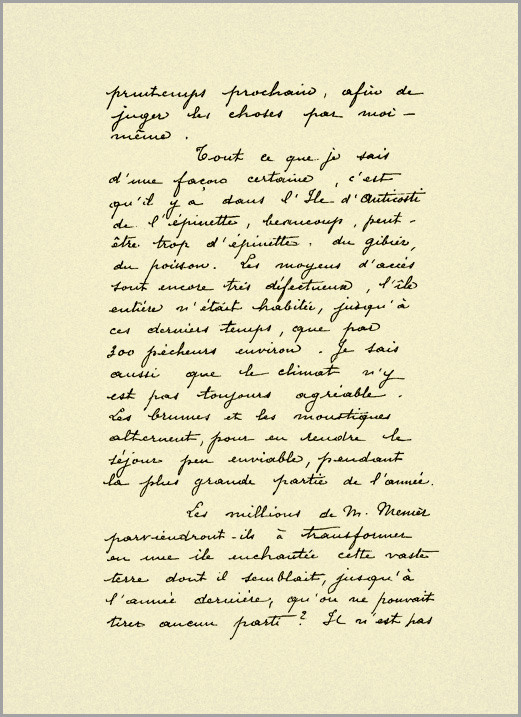 printemps prochain, afin de
juger les choses par moi-
même.
Tout ce que je sais
d'une façon certaine, c'est
qu'il y a dans l'Ile d'Anticosti
de l'épinette, beaucoup, peut-
être trop d'épinette. du gibier,
du poison. Les moyens d'accès
sont encore très défectueux, l'île
entière n'était habitée, jusqu'à
ces derniers temps, que par
300 pêcheurs environ. Je sais
aussi que le climat n'y
est pas toujours agréable.
Les brumes et les moustiques
alternent, pour en rendre le
séjour peu enviable, pendant
la plus grande partie de l'année.
Les millions de M. Menier
parviendront-ils à transformer
en une île enchantée cette vaste
terre dont il semblait, jusqu'à
l'année dernière, qu'on ne pouvait
tirer aucun parti? Il n'est pas